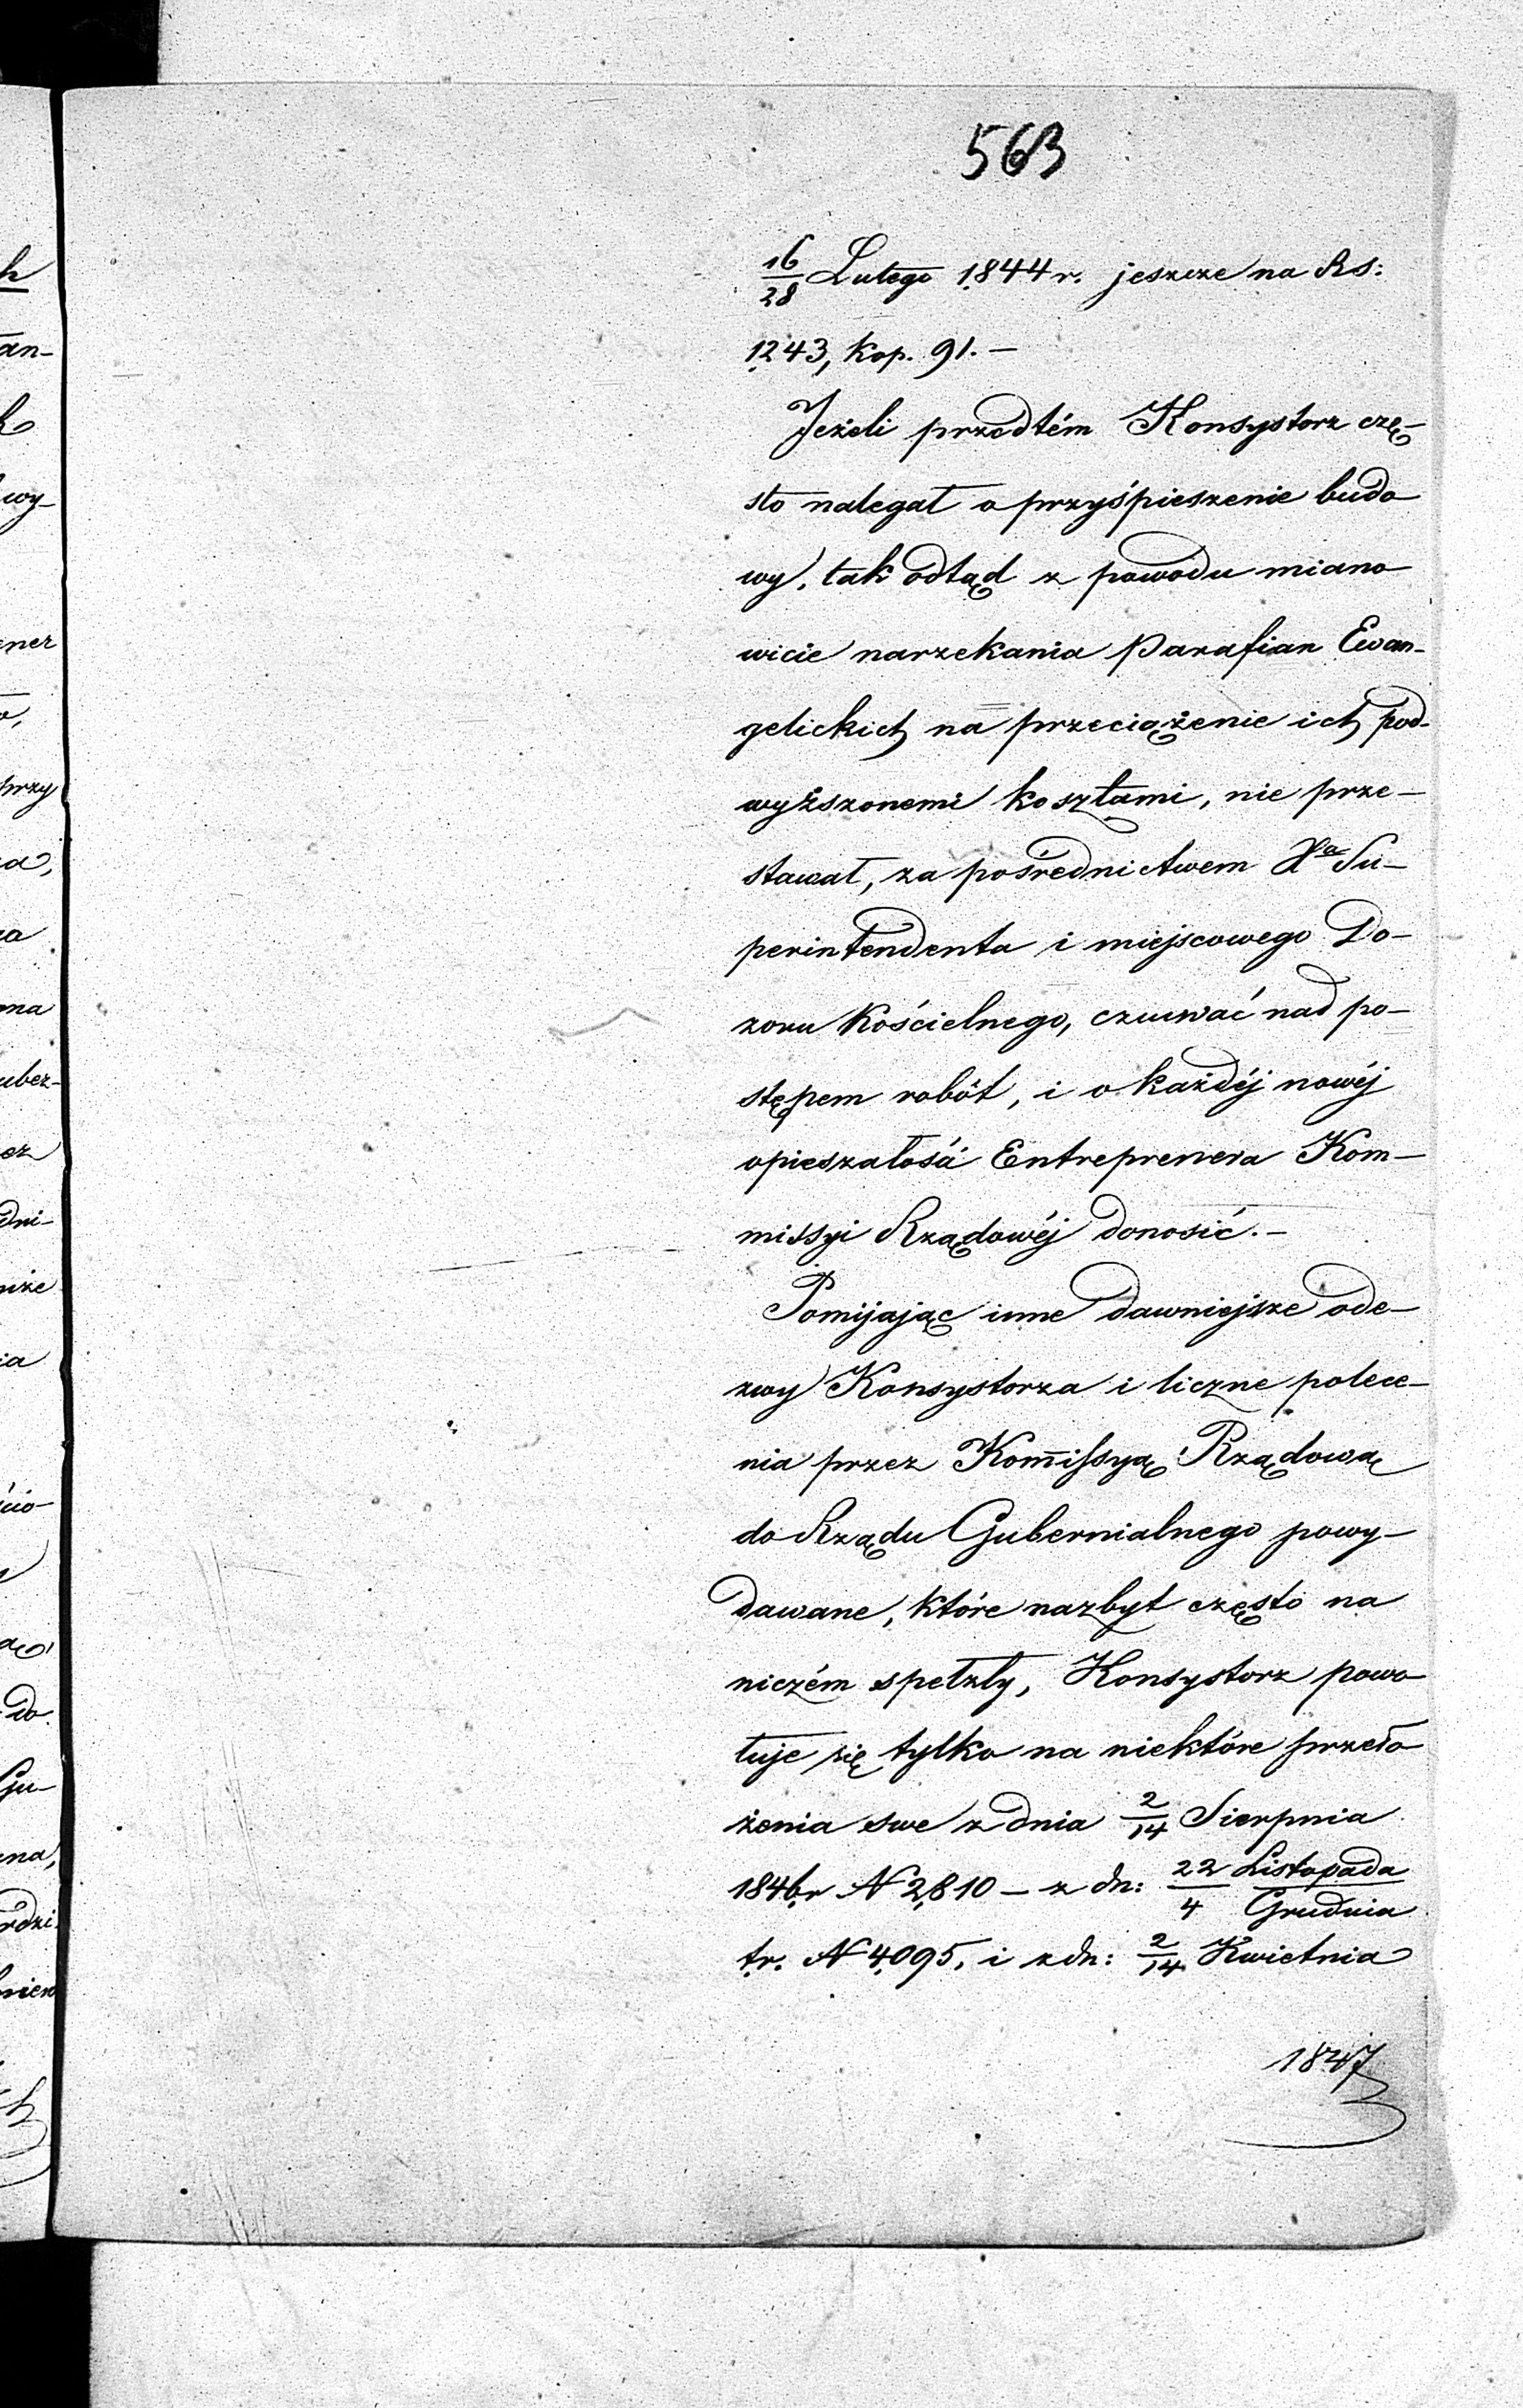 563
16/28 Lutego 1844 r. jeszcze na Rs:
1243, kop. 91. —
Jeżeli przedtém Konsystorz czę-
sto nalegał o przyśpieszenie budo
wy, tak odtąd z powodu miano
wicie narzekania Parafian Ewan-
gelickich na przeciążenie ich pod-
wyższonemi kosztami, nie prze-
stawał, za pośrednictwem Xa Su-
perintendenta i miejscowego Do-
zoru Kościelnego, czuwać nad po-
stępem robót, i o każdéj nowéj
opieszałości Entreprenera Kom-
missyi Rządowéj donosić. —
Pomijając inne dawniejsze ode-
zwy Konsystorza i liczne polece-
nia przez Kom̄issyą Rządową
do Rządu Gubernialnego powy-
dawane, które nazbyt często na
niczém spełzły, Konsystorz powo
łuje się tylko na niektóre przeło
żenia swe z dnia 2/14 Sierpnia
1846 r N 2810 — z dn: 22 Listopada / 4 Grudnia
t.r. N 4095, i z dn: 2/14 Kwietnia
1847